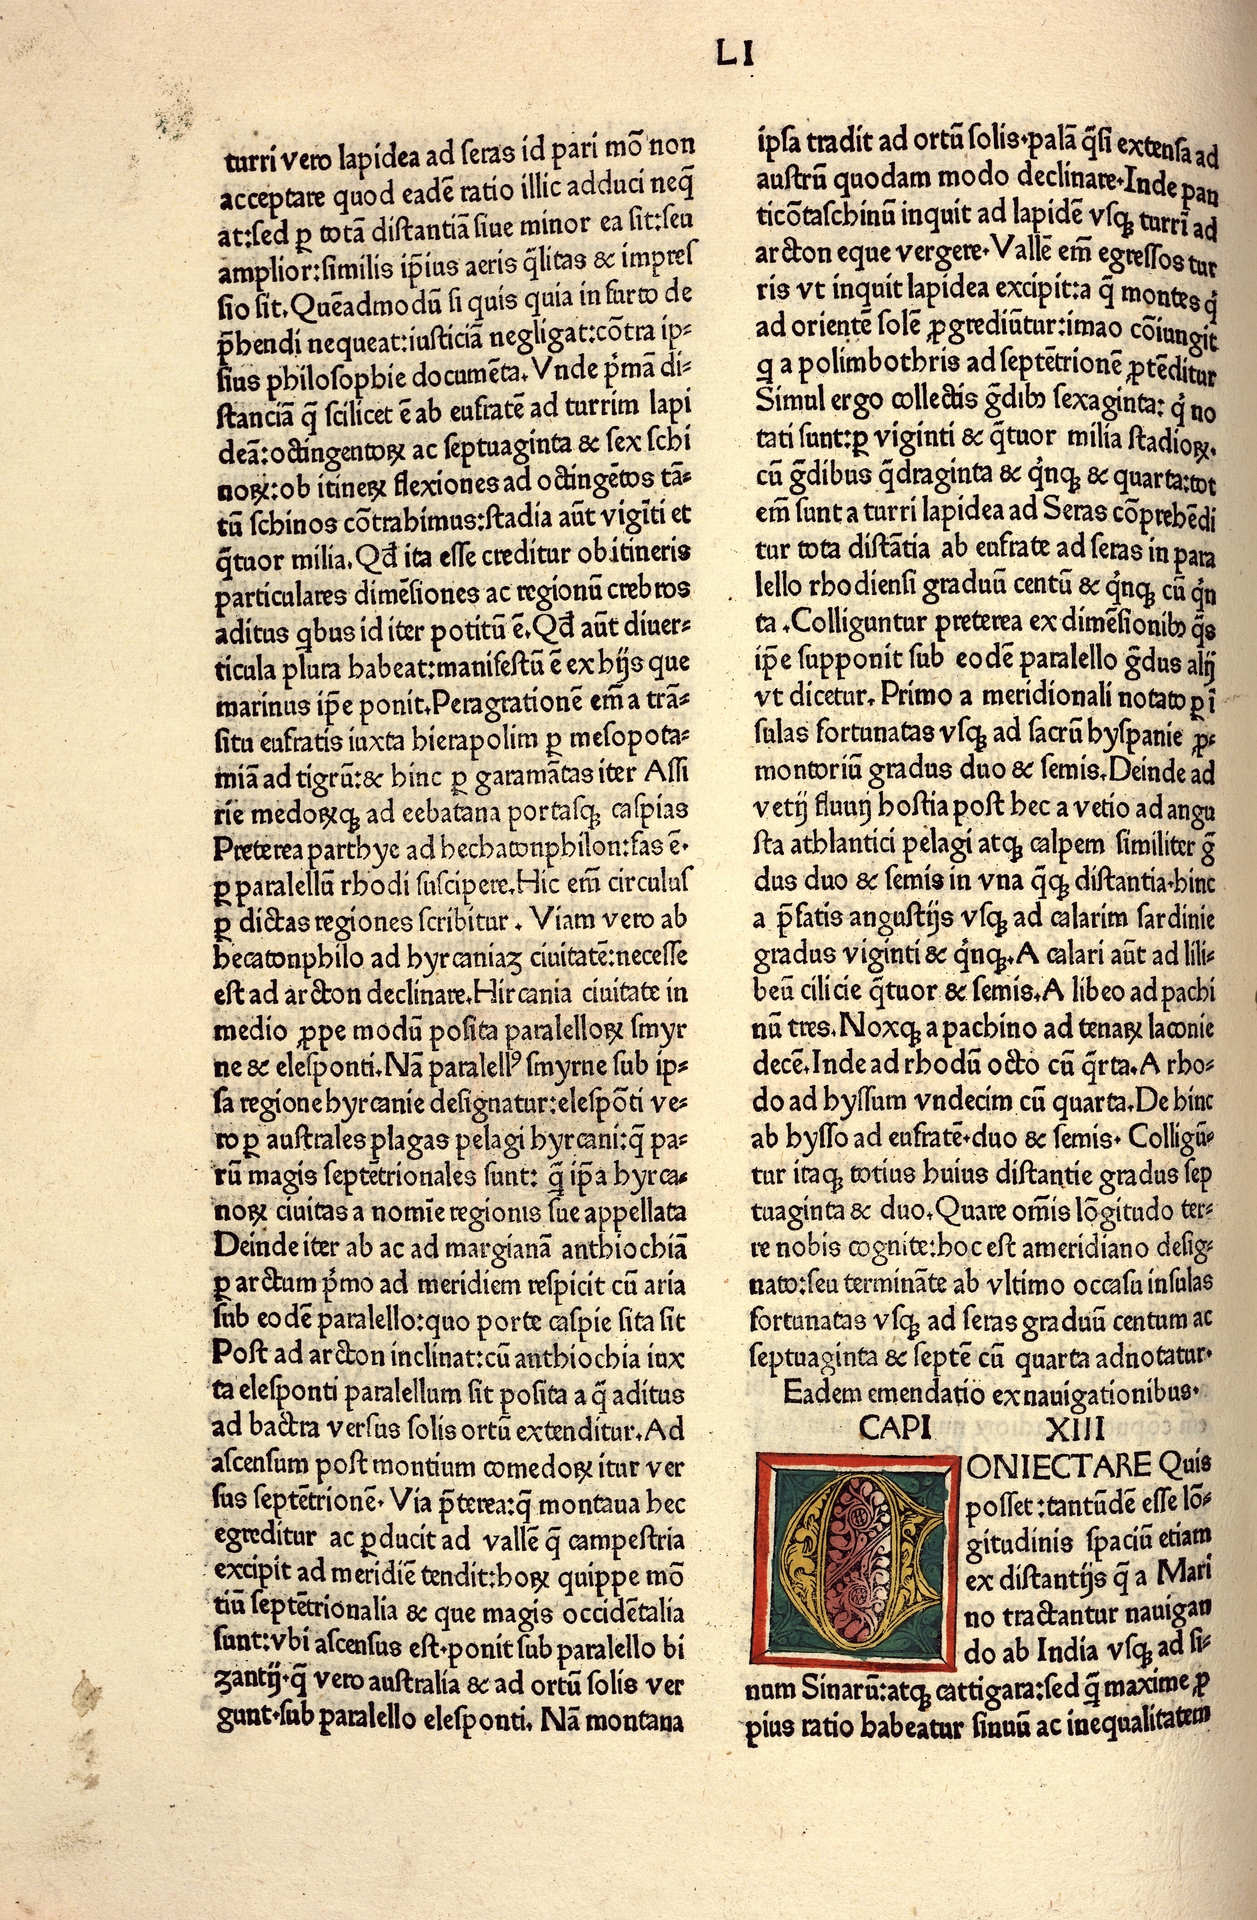 LI
turri vero lapidea ad seras id pari mō non
acceptare quod eadē ratio illic adduci neq̄
at:sed ꝑ totā distantiā siue minor ea sit:seu
amplior:similis ip̄ius aeris q̄litas & impres
sio sit.Quēadmodū si quis quia in furto de
p̄hendi nequeat:iusticiā negligat:cōtra ip⸗
sius philosophie documēta.Vnde pͥmā di⸗
stanciā q̄ scilicet ē ab eufratē ad turrim lapi
deā:octingentoꝝ ac septuaginta & sex schi
noꝝ:ob itineꝝ flexiones ad octingētos tā⸗
tū schinos cōtrahimus:stadia aūt vigīti et
q̄tuor milia.Qđ ita esse creditur ob itineris
particulares dimēsiones ac regionū crebros
aditus qbus id iter potitū ē.Qđ aūt diuer⸗
ticula plura habeat:manifestū ē ex hijs que
marinus ip̄e ponit.Peragrationē em̄ a trā⸗
situ eufratis iuxta hierapolim ꝑ mesopota⸗
miā ad tigrū:& hinc ꝑ garamātas iter Assi
rie medoꝝqꝫ ad eebatana portasqꝫ caspias
Preterea parthye ad hechatonphilon:fas ē.
ꝑ paralellū rhodi suscipere.Hic em̄ circulus
ꝑ dictas regiones scribitur . Viam vero ab
hecatonphilo ad hyrcaniaꝫ ciuitatē:necesse
est ad arcton declinare.Hircania ciuitate in
medio ꝓpe modū posita paralelloꝝ smyr
ne & elesponti.Nā paralellꝰ smyrne sub ip⸗
sa regione hyrcanie designatur:elespōti ve⸗
ro ꝑ australes plagas pelagi hyrcani:q̄ pa⸗
rū magis septētrionales sunt: q̄ ip̄a hyrca⸗
noꝝ ciuitas a nomīe regionis sue appellata
Deinde iter ab ac ad margianā anthiochiā
ꝑ arctum pͥmo ad meridiem respicit cū aria
sub eodē paralello:quo porte caspie sita sit
Post ad arcton inclinat:cū anthiochia iux
ta elesponti paralellum sit posita a q̄ aditus
ad bactra versus solis ortū extenditur.Ad
ascensum post montium comedoꝝ itur ver
sus septētrionē. Via p̄terea:q̄ montaua hec
egreditur ac ꝑducit ad vallē q̄ campestria
excipit ad meridiē tendit:hoꝝ quippe mō
tiū septētrionalia & que magis occidētalia
sunt:vbi ascensus est.ponit sub paralello bi
zantij.q̄ vero australia & ad ortū solis ver
gunt.sub paralello elesponti. Nā montana
ipsa tradit ad ortū solis.palā q̄si extensa ad
austrū quodam modo declinare.Inde pan
ticōtaschinū inquit ad lapidē vsqꝫ turrī ad
arcton eque vergere. Vallē em̄ egressos tur
ris vt inquit lapidea excipit:a q̄ montes qͥ
ad orientē solē ꝓgrediūtur:imao cōiungit
q̨ a polimbothris ad septētrionē ꝓtēditur
Simul ergo collectis ḡdibꝫ sexaginta: qͥ no
tati sunt:ꝑ viginti & q̄tuor milia stadioꝝ.
cū ḡdibus q̄draginta & qͥnqꝫ & quarta:tot
em̄ sunt a turri lapidea ad Seras cōprehēdi
tur tota distātia ab eufrate ad seras in para
lello rhodiensi graduū centū & qͥnqꝫ cū qͥn
ta .Colliguntur preterea ex dimēsionibꝫ q̄s
ip̄e supponit sub eodē paralello ḡdus alij
vt dicetur. Primo a meridionali notato ꝑ ī
sulas fortunatas vsqꝫ ad sacrū hyspanie ꝓ⸗
montoriū gradus duo & semis.Deinde ad
vetij fluuij hostia post hec a vetio ad angu
sta athlantici pelagi atqꝫ calpem similiter ḡ
dus duo & semis in vna q̄qꝫ distantia.hinc
a p̄fatis angustijs vsqꝫ ad calarim sardinie
gradus viginti & qͥnqꝫ.A calari aūt ad lili⸗
beū cilicie q̄tuor & semis.A libeo ad pachi
nū tres.Noxqꝫ a pachino ad tenaꝝ laconie
decē.Inde ad rhodū octo cū q̄rta.A rho⸗
do ad hyssum vndecim cū quarta.De hinc
ab hysso ad eufratē.duo & semis. Colligū⸗
tur itaqꝫ totius huius distantie gradus sep
tuaginta & duo.Quare om̄is lōgitudo ter⸗
re nobis cognite:hoc est ameridiano desig⸗
nato:seu termināte ab vltimo occasu insulas
fortunatas vsqꝫ ad seras graduū centum ac
septuaginta & septē cū quarta adnotatur.
Eadem emendatio ex nauigationibus.
CAPI XIII
CONIECTARE Quis
posset:tantūdē esse lō⸗
gitudinis spaciū etiam
ex distantijs q̄ a Mari
no tractantur nauigan
do ab India vsqꝫ ad si⸗
num Sinarū:atqꝫ cattigara:sed q̄ maxime ꝓ
pius ratio habeatur sinuū ac inequalitatem